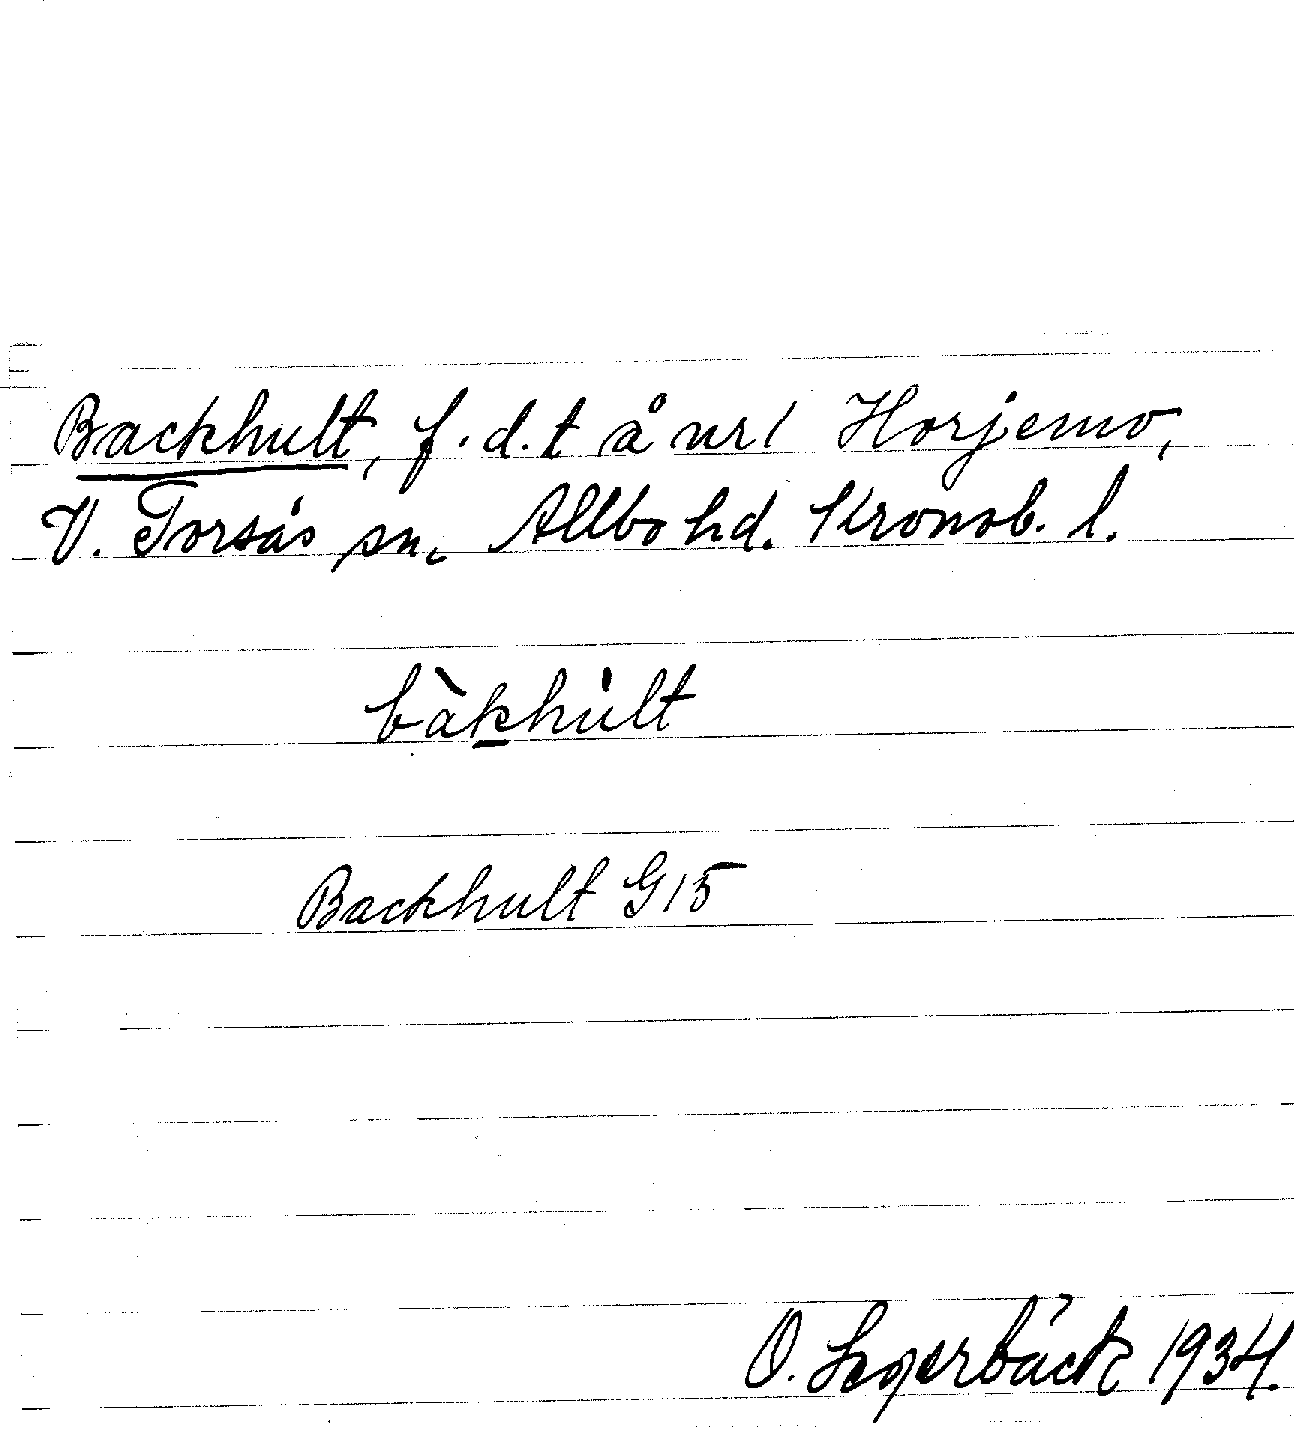 Backhult, f.d.t å nr 1 Horjemo,
V. Torsås sn. Allbo hd. Kronob. l.
bàkhu̍lt
Backhult G15
O. Segerbäck 1934.